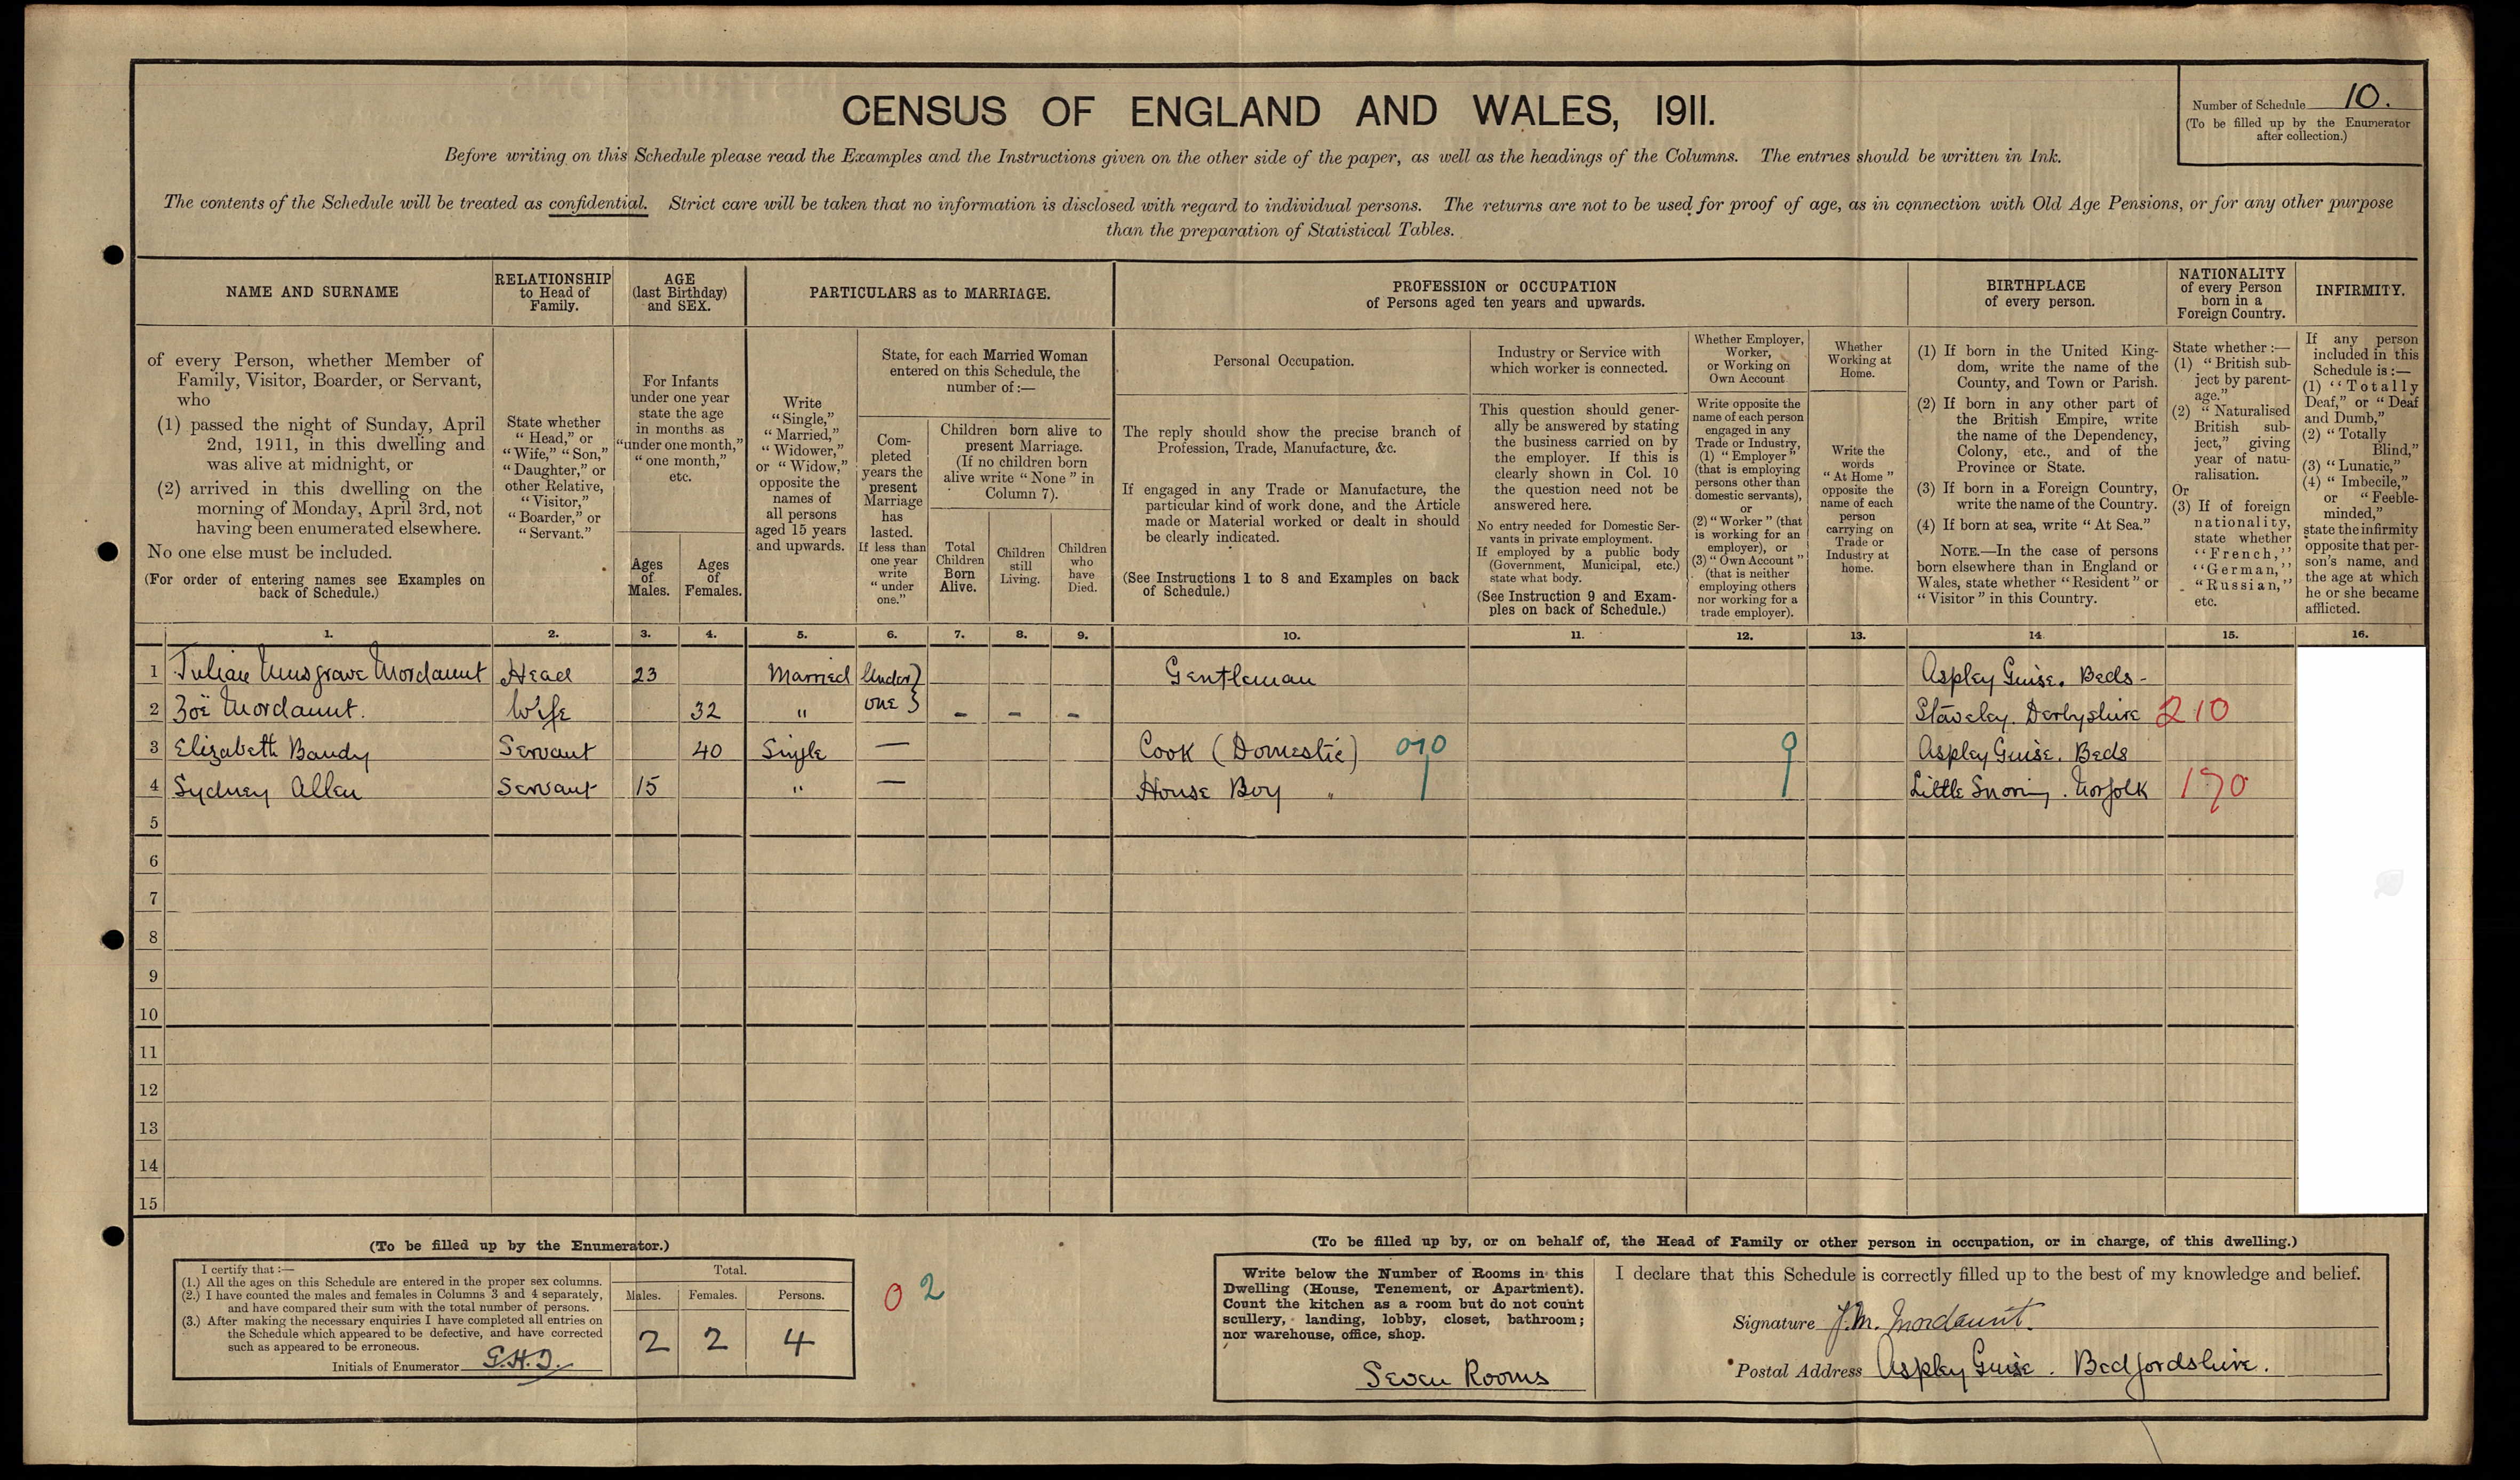 CENSUS OF ENGLAND AND WALES, 1911.
Number of Schedule 10.
(To be filled up by the Enumerator
after collection.)
Before writing on this Schedule please read the Examples and the Instructions given on the other side of the paper, as well as the headings of the Columns. The entries should be written in Ink.
The contents of the Schedule will be treated as confidential. Strict care will be taken that no information is disclosed with regard to individual persons. The returns are not to be used for proof of age, as in connection with Old Age Pensions, or for any other purpose
than the preparation of Statistical Tables.
NAME AND SURNAME
of every Person, whether Member of
Family, Visitor, Boarder, or Servant,
who
(1) passed the night of Sunday, April
2nd, 1911, in this dwelling and
was alive at midnight, or
(2) arrived in this dwelling on the
morning of Monday, April 3rd, not
having been enumerated elsewhere.
No one else must be included.
(For order of entering names see Examples on
back of Schedule.)
RELATIONSHIP
to Head of
Family.
State whether
"Head," or
"Wife," "Son,"
"Daughter," or
other Relative,
"Visitor,"
"Boarder," or
"Servant."
AGE
(last Birthday)
and SEX.
For Infants
under one year
state the age
in months as
"under one month,"
"one month,"
etc.
Ages
of
Males.
Ages
of
Females.
PARTICULARS as to MARRIAGE.
Write
"Single,"
"Married,"
"Widower,"
or "Widow,"
opposite the
names of
all persons
aged 15 years
and upwards.
State, for each Married Woman
entered on this Schedule, the
number of:—
Com-
pleted
years the
present
Marriage
has
lasted.
If less than
one year
write
"under
one."
Children born alive to
present Marriage.
(If no children born
alive write "None" in
Column 7).
Total
Children
Born
Alive.
Children
still
Living.
Children
who
have
Died.
PROFESSION or OCCUPATION
of Persons aged ten years and upwards.
Personal Occupation.
The reply should show the precise branch of
Profession, Trade, Manufacture, &c.
If engaged in any Trade or Manufacture, the
particular kind of work done, and the Article
made or Material worked or dealt in should
be clearly indicated.
(See Instructions 1 to 8 and Examples on back
of Schedule.)
Industry or Service with
which worker is connected.
This question should gener-
ally be answered by stating
the business carried on by
the employer. If this is
clearly shown in Col. 10
the question need not be
answered here.
No entry needed for Domestic Ser-
vants in private employment.
If employed by a public body
(Government, Municipal, etc.)
state what body.
(See Instruction 9 and Exam-
ples on back of Schedule.)
Whether Employer,
Worker,
or Working on
Own Account
Write opposite the
name of each person
engaged in any
Trade or Industry,
(1) "Employer"
(that is employing
persons other than
domestic servants),
or
(2) "Worker" (that
is working for an
employer), or
(3) "Own Account"
(that is neither
employing others
nor working for a
trade employer).
Whether
Working at
Home.
Write the
words
"At Home"
opposite the
name of each
person
carrying on
Trade or
Industry at
home.
BIRTHPLACE
of every person.
(1) If born in the United King-
dom, write the name of the
County, and Town or Parish.
(2) If born in any other part of
the British Empire, write
the name of the Dependency,
Colony, etc., and of the
Province or State.
(3) If born in a Foreign Country,
write the name of the Country.
(4) If born at sea, write "At Sea."
NOTE.—In the case of persons
born elsewhere than in England or
Wales, state whether "Resident" or
"Visitor" in this Country.
NATIONALITY
of every Person
born in a
Foreign Country.
State whether:—
(1) "British sub-
ject by parent-
age."
(2) "Naturalised
British sub-
ject," giving
year of natu-
ralisation.
Or
(3) If of foreign
nationality,
state whether
"French,"
"German,"
"Russian,"
etc.
INFIRMITY.
If any person
included in this
Schedule is:—
(1) "Totally
Deaf," or "Deaf
and Dumb,"
(2) "Totally
Blind,"
(3) "Lunatic,"
(4) "Imbecile,"
or "Feeble-
minded,"
state the infirmity
opposite that per-
son's name, and
the age at which
he or she became
afflicted.
1. 2. 3. 4. 5. 6. 7. 8. 9. 10. 11. 12. 13. 14. 15. 16.
1 Julian Musgrave Mordaunt Head 23 Married Under Gentleman Aspley Guise. Beds -
2 Zoë Mordaunt. Wife 32 " one } - - - Staveley. Derbyshire 210
3 Elizabeth Bandy Servant 40 Single — Cook (Domestic) 010 9 Aspley Guise. Beds
4 Sydney Allen Servant 15 " — House Boy " Little Snoring. Norfolk 170
5
6
7
8
9
10
11
12
13
14
15
(To be filled up by the Enumerator.)
I certify that:—
(1.) All the ages on this Schedule are entered in the proper sex columns.
(2.) I have counted the males and females in Columns 3 and 4 separately,
and have compared their sum with the total number of persons.
(3.) After making the necessary enquiries I have completed all entries on
the Schedule which appeared to be defective, and have corrected
such as appeared to be erroneous.
Initials of Enumerator
Total.
Males. Females. Persons.
2 2 4
0 2
(To be filled up by, or on behalf of, the Head of Family or other person in occupation, or in charge, of this dwelling.)
Write below the Number of Rooms in this
Dwelling (House, Tenement, or Apartment).
Count the kitchen as a room but do not count
scullery, landing, lobby, closet, bathroom;
nor warehouse, office, shop.
Seven Rooms
I declare that this Schedule is correctly filled up to the best of my knowledge and belief.
Signature J.M. Mordaunt.
Postal Address Aspley Guise. Bedfordshire.